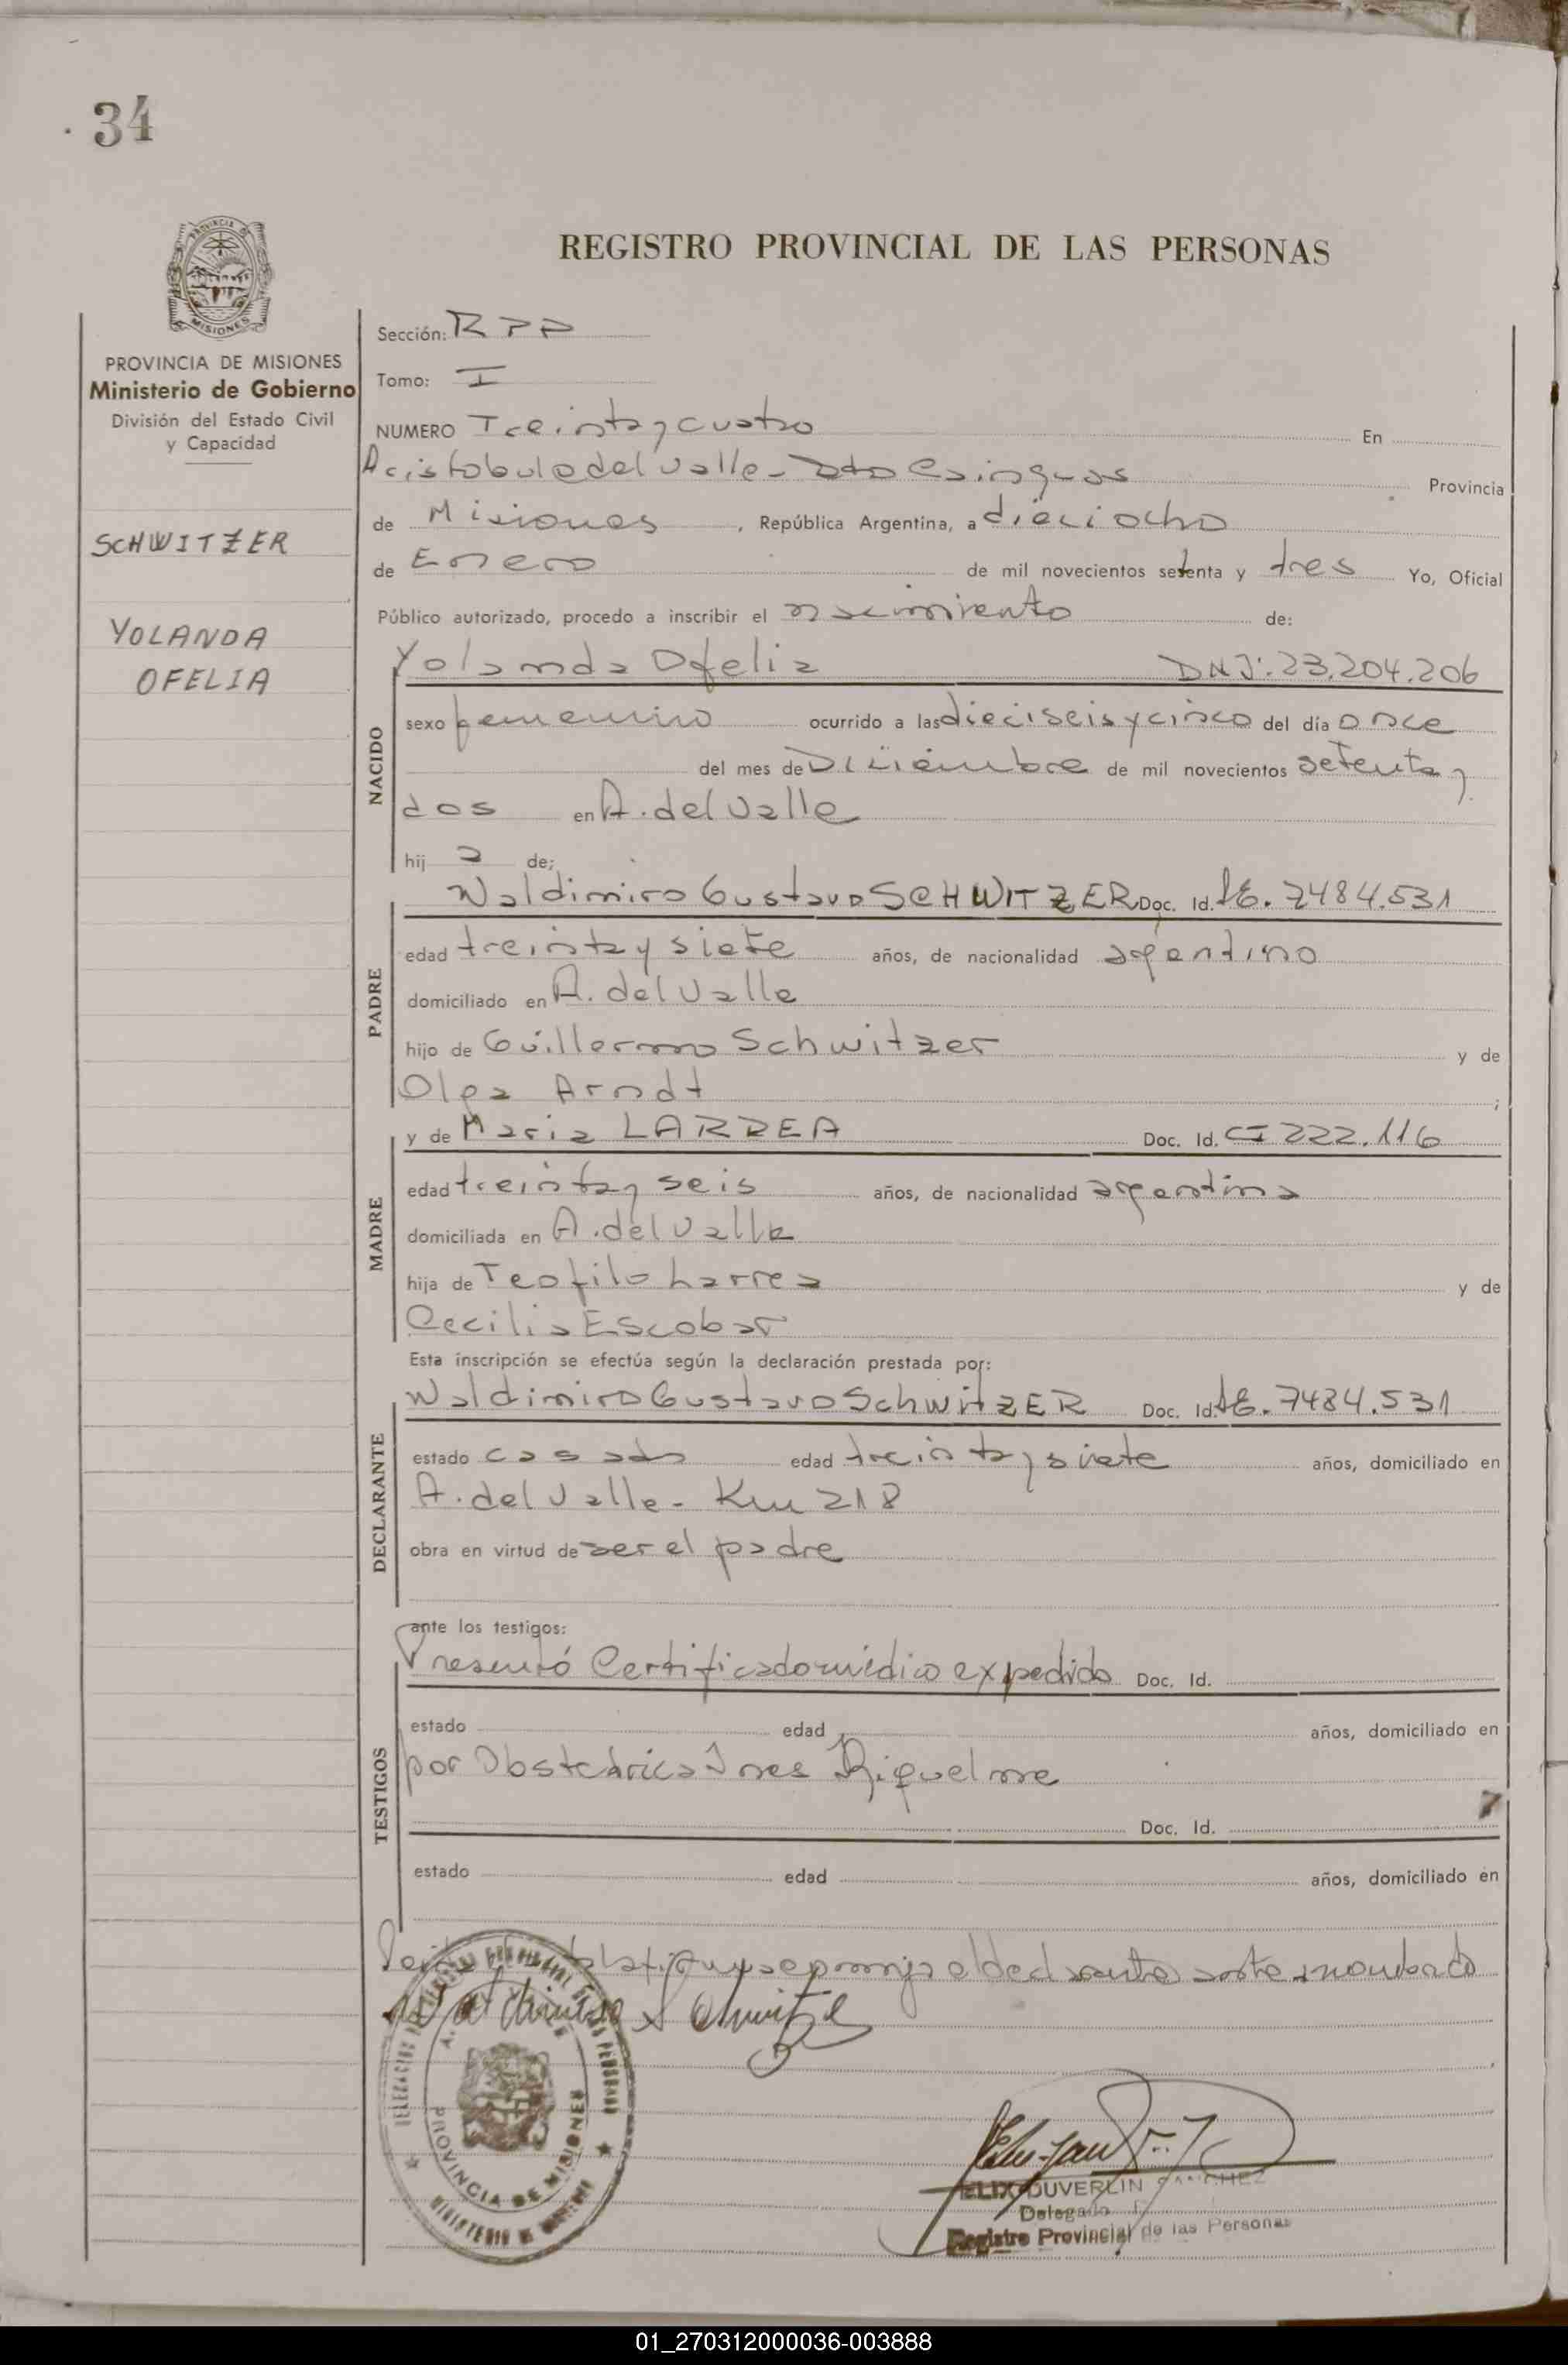 34
REGISTRO PROVINCIAL DE LAS PERSONAS
PROVINCIA DE MISIONES
Ministerio de Gobierno
División del Estado Civil
y Capacidad
SCHWITZER
YOLANDA
OFELIA
Sección: RPP
Tomo: I
NUMERO Treinta y cuatro En
Aristobulo del Valle - Dto Cainguas Provincia
de Misiones, República Argentina, a dieciocho
de Enero de mil novecientos setenta y tres Yo, Oficial
Público autorizado, procedo a inscribir el nacimiento de:
NACIDO
Yolanda Ofelia DNI: 23.204.206
sexo femenino ocurrido a las dieciseis y cinco del día once
del mes de Diciembre de mil novecientos setenta y
dos en A. del Valle
hij a de:
PADRE
Waldimiro Gustavo SCHWITZER Doc. Id. LE. 7484.531
edad treinta y siete años, de nacionalidad argentino
domiciliado en A. del Valle
hijo de Guillermo Schwitzer y de
Olga Arndt ;
MADRE
y de Maria LARREA Doc. Id. CI 222.116
edad treinta y seis años, de nacionalidad argentina
domiciliada en A. del Valle
hija de Teofilo Larrea y de
Cecilia Escobar
Esta inscripción se efectúa según la declaración prestada por:
DECLARANTE
Waldimiro Gustavo SchwitZER Doc. Id. LE. 7484.531
estado casado edad treinta y siete años, domiciliado en
A. del Valle - Km 218
obra en virtud de ser el padre
ante los testigos:
TESTIGOS
Presentó Certificado médico expedido Doc. Id.
estado edad años, domiciliado en
por Obstetrica Ines Riquelme
Doc. Id.
estado edad años, domiciliado en
el declarante ante nombrado
Schwitzer
PROVINCIA DE MISIONES
FELIX DUVERLIN SANCHEZ
Delegado
Registro Provincial de las Personas
01_270312000036-003888